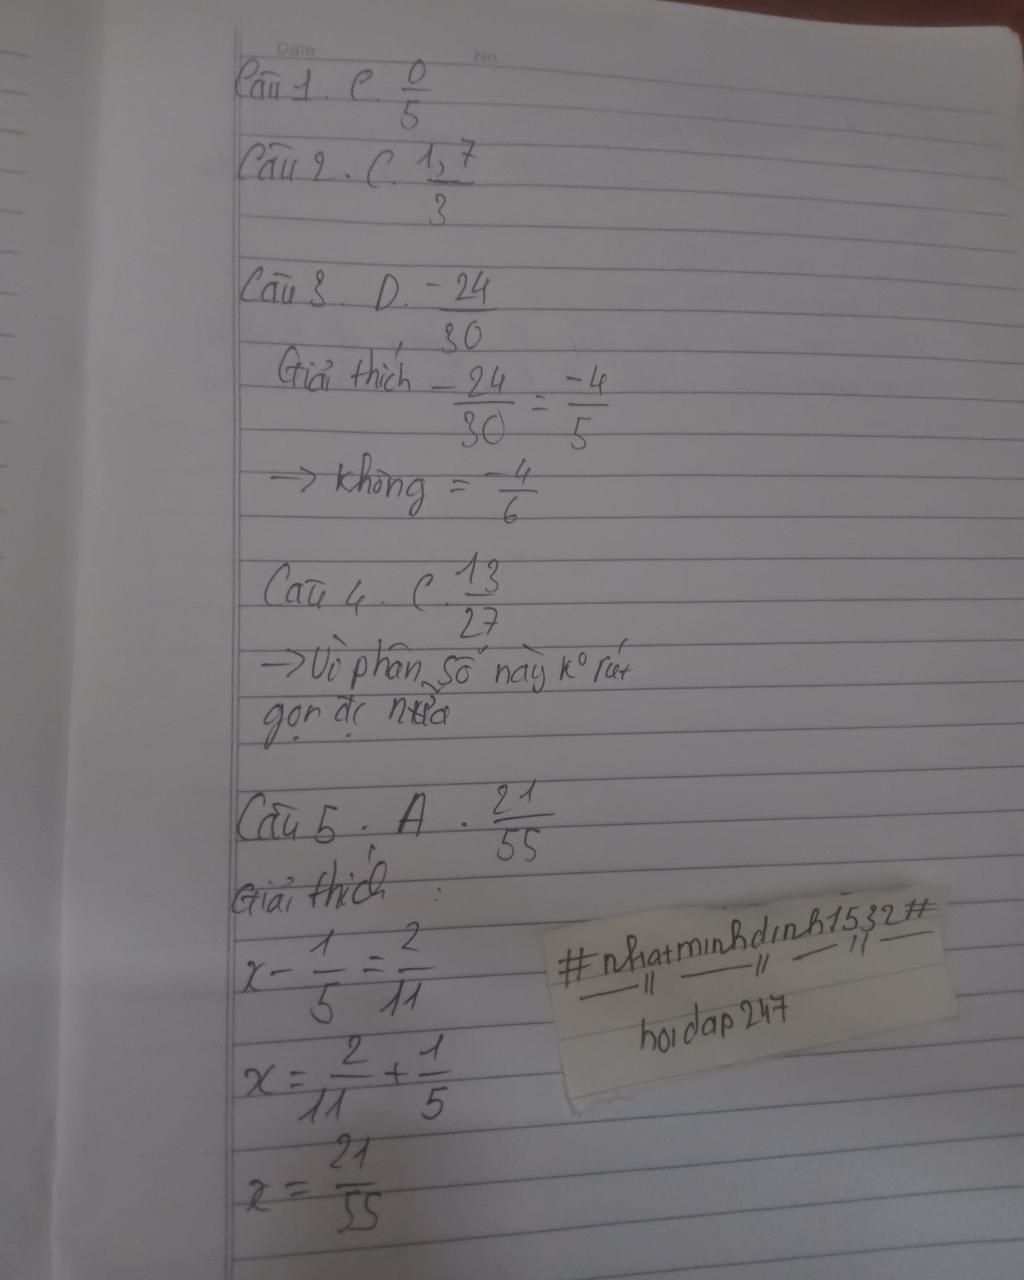 Date No
Câu 1. C. 0/5
Câu 2. C. 1,7/3
Câu 3. D. -24/30
Giải thích -24/30 = -4/5
→ không = -4/6
Câu 4. C. 13/27
→ Vì phân số này ko rút
gọn đc nữa
Câu 5. A. 21/55
Giải thích :
x - 1/5 = 2/11
x = 2/11 + 1/5
x = 21/55
#nhatminhdinh1532#
hoidap247